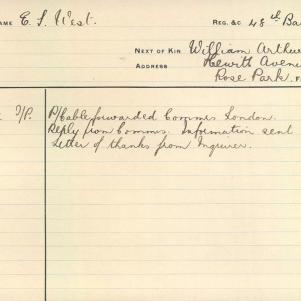 NAME E. S. West. REG. &C. 48th Ba
NEXT OF KIN William Arthur
ADDRESS Hewitt Avenu
Rose Park.
I/P. P/Cable forwarded Commrs London.
Reply from Commrs. Information sent
Letter of thanks from Inquirer.